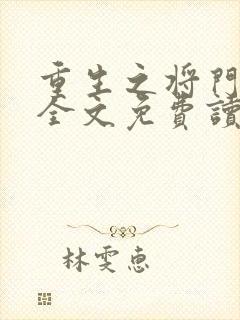 重生之将門
全文免費讀
林雯惠